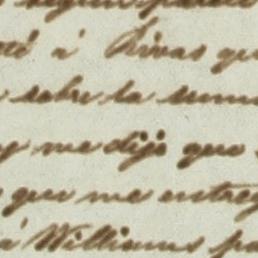 á Rivas qu
sobre la suma
me dijo que
que me entreg
á Williams pa